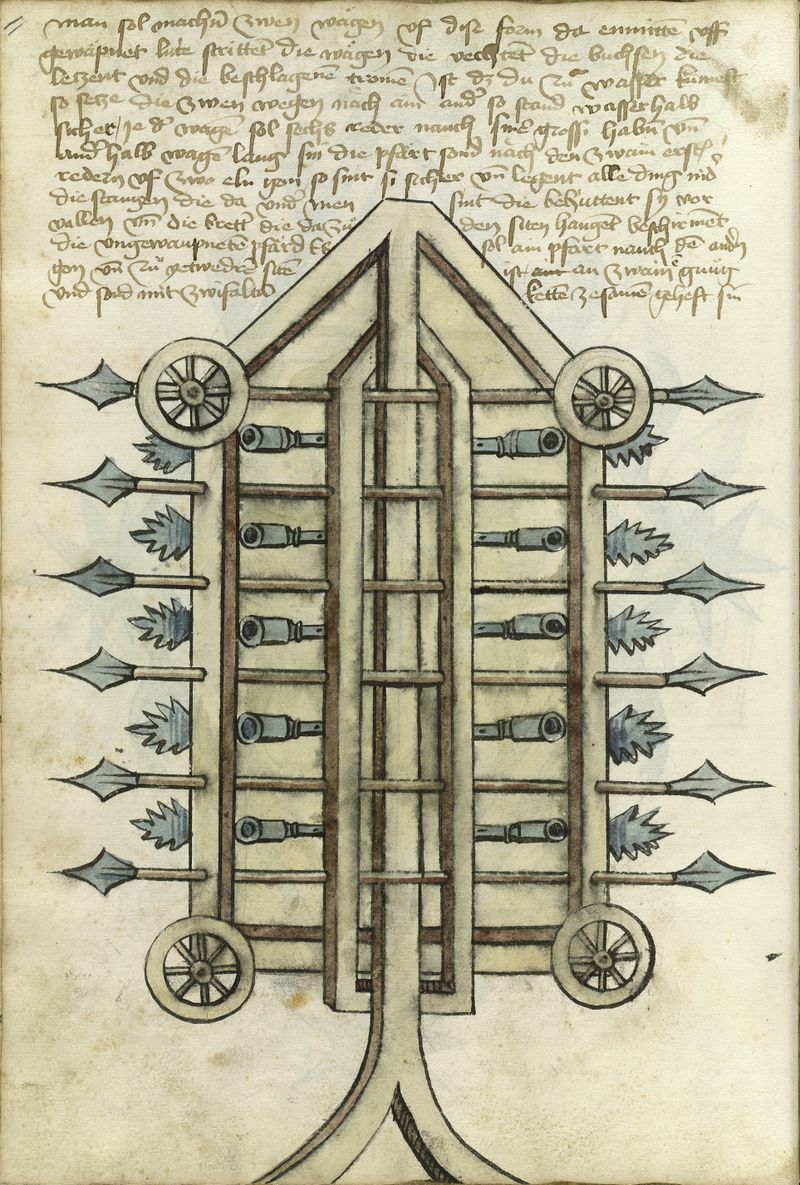 man sol machen zwen wägen vf dise form da enmitten vff
gewapnet lute scrittet die wägen die vechtet die buchsen die
letzent vnd die beschlagenē ist dz du zů wasser kumest
so setze die zwen wegen nach am andˀ so stand wasserhalb
sicher / je dˀ wagē sol sechs reder nauch sinˀ grossi habn vn̄
andˀhalb wagē lang sin die pfärt sond nach den zwain ersten
redern vf zwo eln so sint si sicher vn̄ legent alle ding nid
die stangen die da vndˀ men sint die behuttent sy vor
vallen vn̄ die kettē die da zů den siten hanget beschirment
die vngewaupnetē pfärd sol am pfärt nauch dē andn
gon vn̄ zů yetwedrē sitē ist an zwain gnůg
vnd sond mit zwifalt kettē zesamen geheft sin